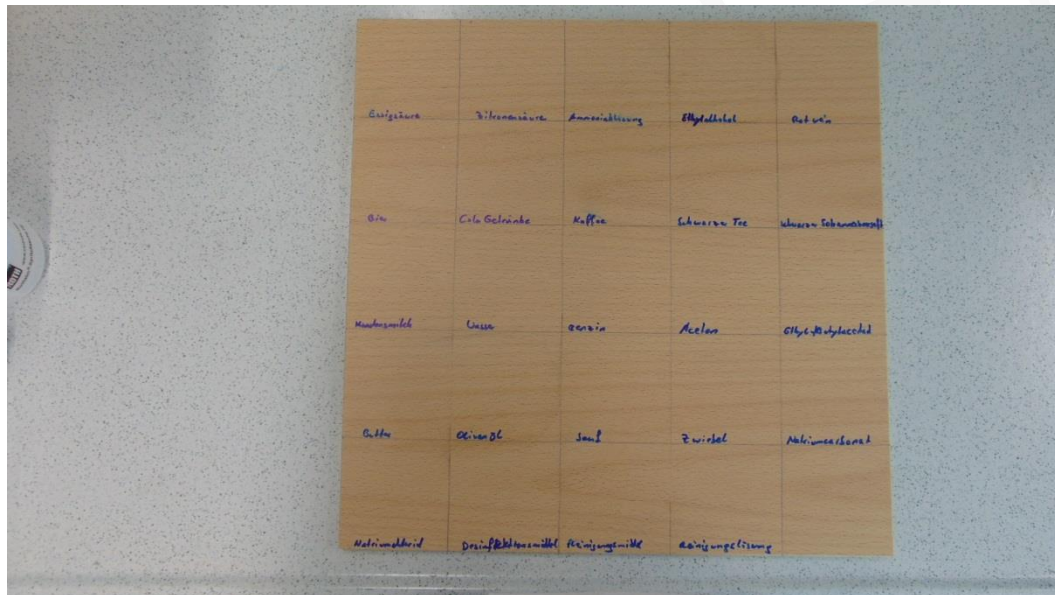 Essigsäure Zitronensäure Ammoniaklösung Ethylalkohol Rotwein
Bier Cola Getränke Kaffee Schwarzer Tee schwarzer Johannisbeersaft
Kondensmilch Wasser Benzin Aceton Ethyl-/Butylacetat
Butter Olivenöl Senf Zwiebel Natriumcarbonat
Natriumchlorid Desinffektionsmittel Reinigungsmittel Reinigungslösung